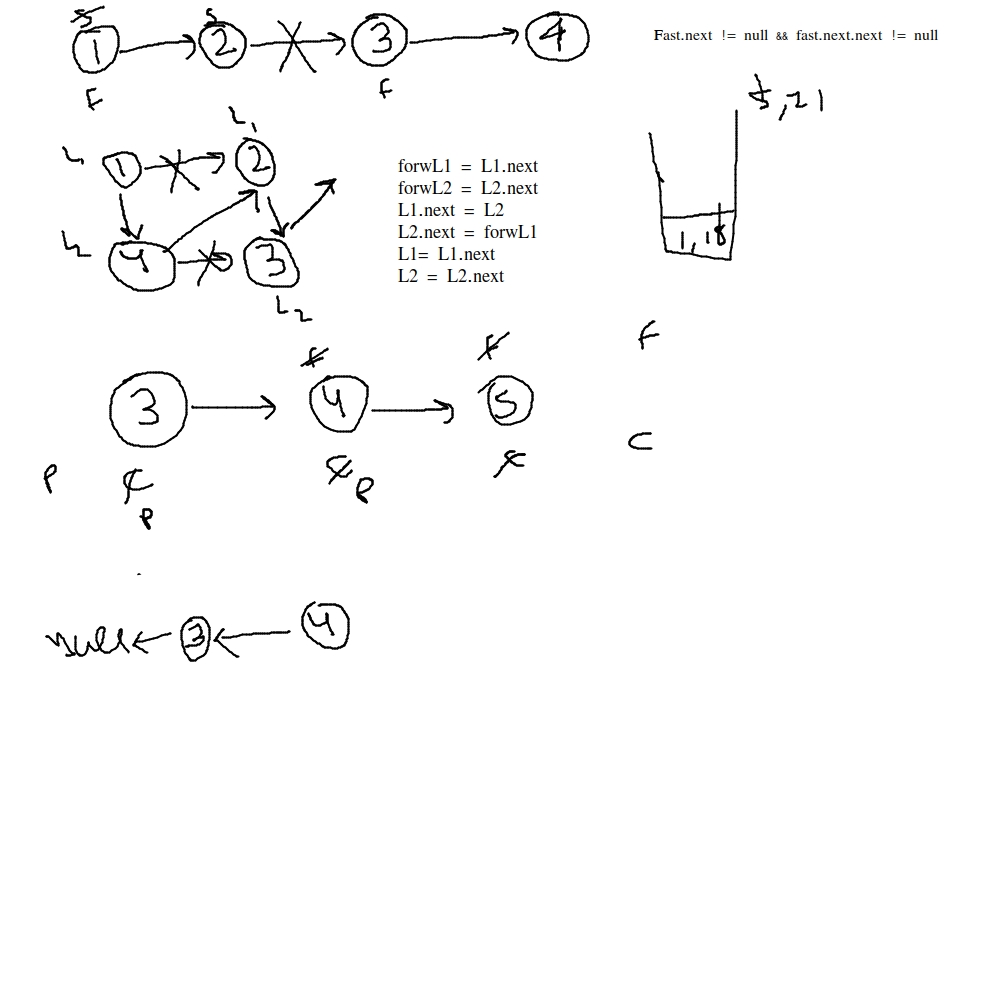 S S
1 2 3 4
Fast.next != null && fast.next.next != null
F F
5,21
L1
L1 1 2
forwL1 = L1.next
forwL2 = L2.next
L1.next = L2
L2.next = forwL1
L1= L1.next
L2 = L2.next
1,18
L2 4 3
L2
F F F
3 4 5
C
P C C C
P P
null 3 4